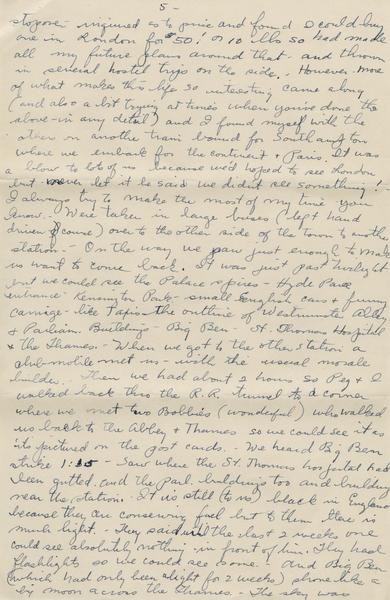 5 -
inquired as to price and found I could buy
one in London for $50! or 10 lbs so had made
all my future plans around that and thrown
in several hostel trips on the side. However, more
of what makes this life so interesting came along
(and also a bit trying at times when you've done the
above in any detail) and I found myself with the
others on another train bound for Southampton
where we embark for the continent & Paris. It was
a blow to lots of us because we'd hoped to see London
but never let it be said we didn't see something!
I always try to make the most of my time you
know. - Were taken in large buses (left hand
driven of course) over to the other side of the town to another
station - On the way we saw just enough to make
us want to come back. It was just past twilight
but we could see the Palace spires - Hyde Park
entrance Kensington Park - small English cars & funny
carriage-like taxis - the outline of Westminster Abbey
& Parliam. Buildings - Big Ben - St. Thomas Hospital
& the Thames. - When we got to the other station a
clubmobile met us - with the usual morale
builders. Then we had about 2 hours so Peg & I
walked back thru the R.R. tunnel to a corner
where we met two Bobbies (wonderful) who walked
us back to the Abbey & Thames so we could see it as
its pictured on the post cards. - We heard Big Ben
strike 1:15 - Saw where the St. Thomas hospital had
been gutted and the Parl. buildings too and buildings
near the station. It is still (to us) black in England
because they are conserving fuel but to them there is
much light. - They said until the last 2 weeks one
could see absolutely nothing in front of him. They had
flashlights so we could see some - And Big Ben
(which had only been alight for 2 weeks) shone like a
big moon across the Thames. - The sky was